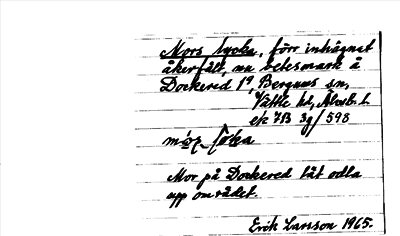 Mors lycka, förr inhägnat
åkerfält, nu betesmark å
Dockered 1⁹, Bergums sn,
Vättle hd, Älvsb. l.
ek 7B 3g/598
Mor på Dockered lät odla
upp området.
Erik Larsson 1965.